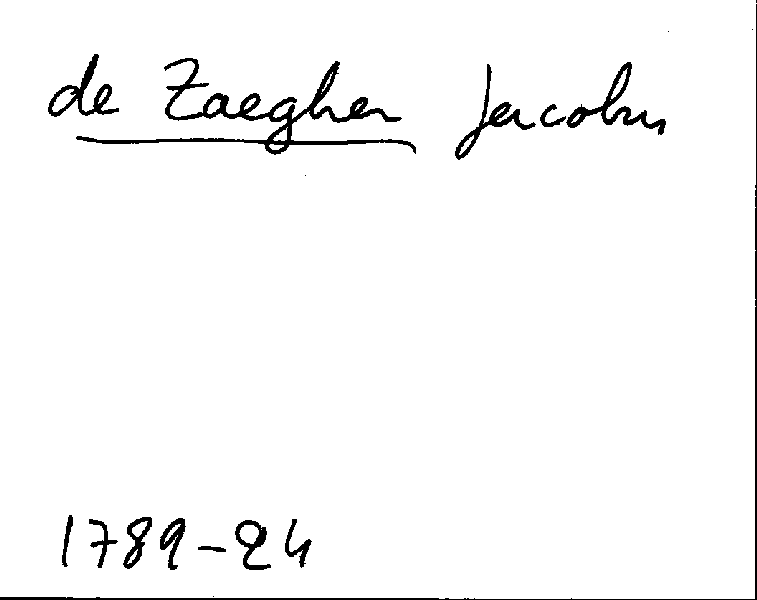 de Zaegher Jacobus
1789-24